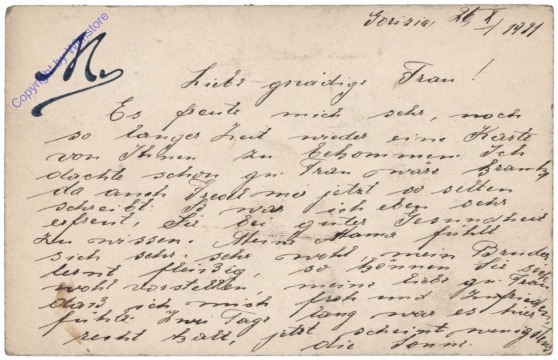 Gorizia, 26/X 1931
M.
Liebe gnädige Frau!
Es freute mich sehr, nach
so langer Zeit wieder eine Karte
von Ihnen zu bekommen. Ich
dachte schon gn. Frau wäre krank,
da auch mir jetzt so selten
schreibt. So war ich eben sehr
erfreut, Sie bei guter Gesundheit
zu wissen. Meine Mama fühlt
sich sehr, sehr wohl, mein Bruder
lernt fleißig, so können Sie sich
wohl vorstellen, meine liebe gn. Frau
daß ich mich froh und zufrieden
fühle. Zwei Tage lang war es hier
recht kalt, jetzt scheint wenigstens
die Sonne.
Copyright by